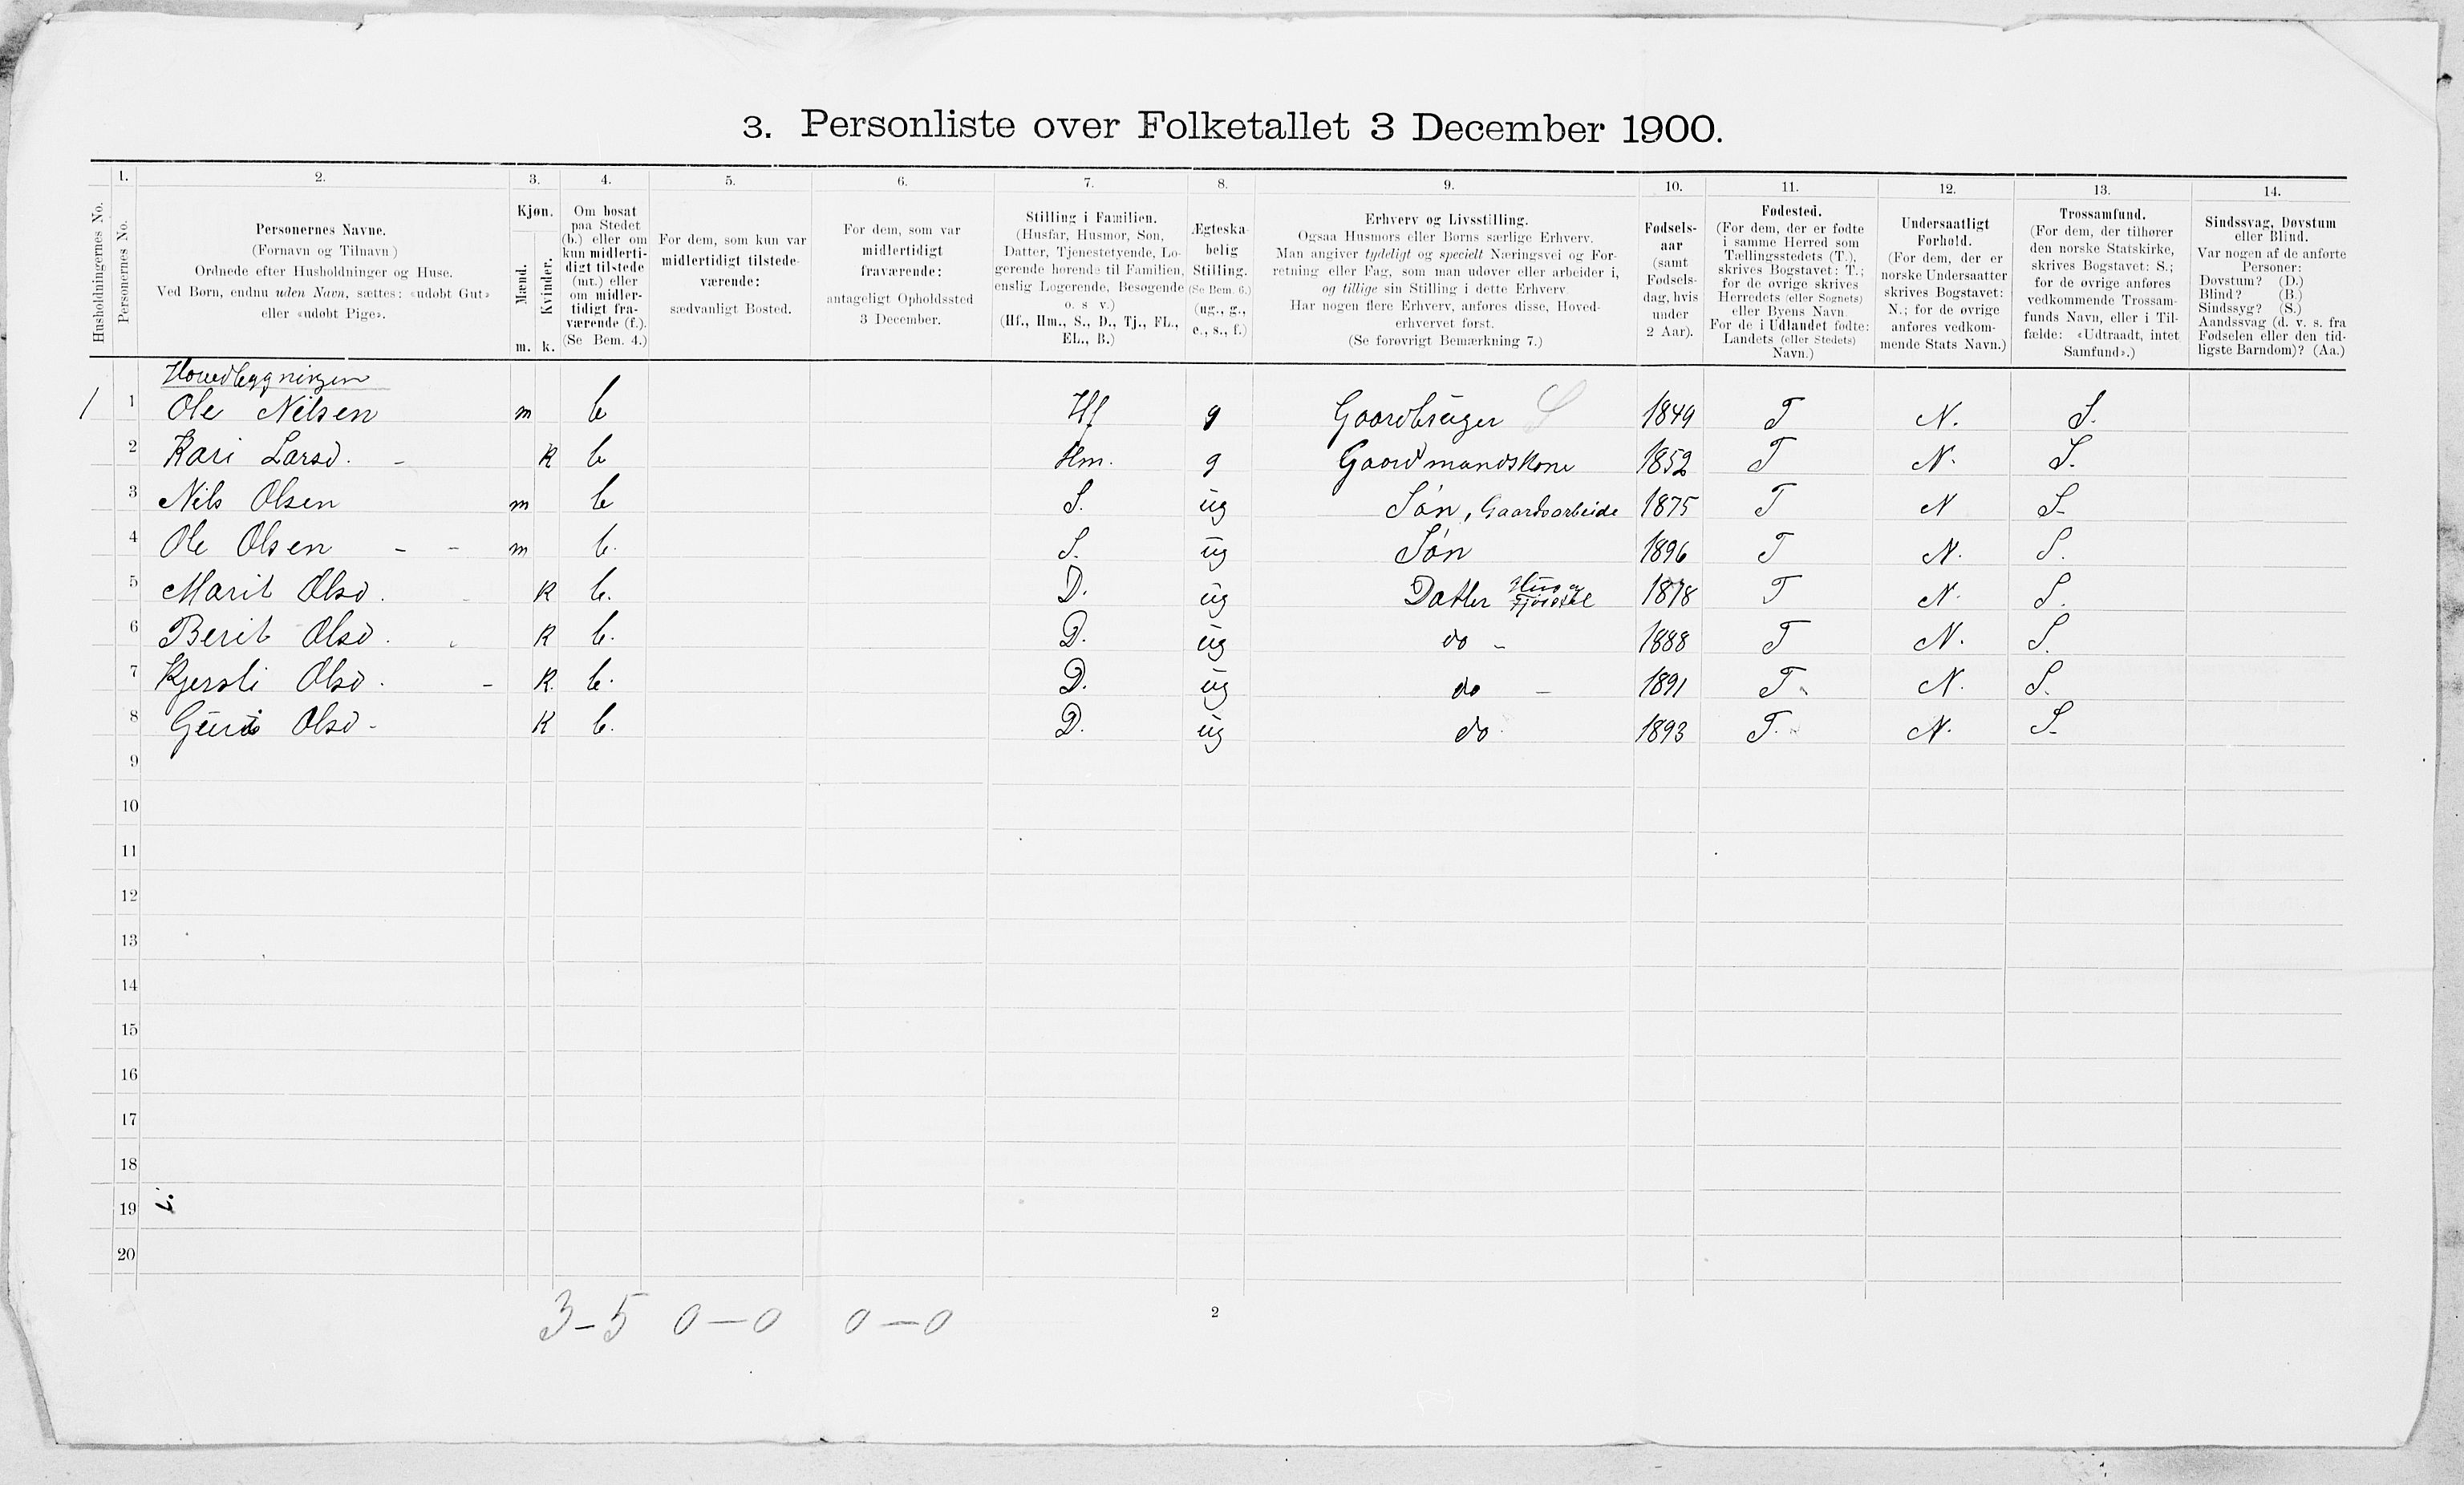 3. Personliste over Folketallet 3 December 1900.
Husholdningernes No.
1.
Personernes No.
2.
Personernes Navne.
(Fornavn og Tilnavn)
Ordnede efter Husholdninger og Huse.
Ved Børn, endnu uden Navn, sættes: «udøbt Gut»
eller «udøbt Pige».
3.
Kjøn.
Mænd.
Kvinder.
m. k.
4.
Om bosat
paa Stedet
(b.) eller om
kun midlerti-
digt tilstede
(mt.) eller
om midler-
tidigt fra-
værende (f.).
(Se Bem. 4.)
5.
For dem, som kun var
midlertidigt tilstede-
værende:
sædvanligt Bosted.
6.
For dem, som var
midlertidigt
fraværende:
antageligt Opholdssted
3 December.
7.
Stilling i Familien.
(Husfar, Husmor, Søn,
Datter, Tjenestetyende, Lo-
gerende hørende til Familien,
enslig Logerende, Besøgende
o. s v.)
(Hf., Hm., S., D., Tj., FL.,
EL., B.)
8.
Ægteska-
belig
Stilling.
(Se Bem. 6.)
(ug., g.,
e., s., f.)
9.
Erhverv og Livsstilling.
Ogsaa Husmors eller Børns særlige Erhverv.
Man angiver tydeligt og specielt Næringsvei og For-
retning eller Fag, som man udøver eller arbeider i,
og tillige sin Stilling i dette Erhverv.
Har nogen flere Erhverv, anføres disse, Hoved-
erhvervet først.
(Se forøvrigt Bemærkning 7.)
10.
Fødsels-
aar
(samt
Fødsels-
dag, hvis
under
2 Aar).
11.
Fødested.
(For dem, der er fødte
i samme Herred som
Tællingsstedets (T.),
skrives Bogstavet: T.;
for de øvrige skrives
Herredets (eller Sognets)
eller Byens Navn.
For de i Udlandet fødte:
Landets (eller Stedets)
Navn.)
12.
Undersaatligt
Forhold.
(For dem, der er
norske Undersaatter
skrives Bogstavet:
N.; for de øvrige
anføres vedkom-
mende Stats Navn.)
13.
Trossamfund.
(For dem, der tilhører
den norske Statskirke,
skrives Bogstavet: S.;
for de øvrige anføres
vedkommende Trossam-
funds Navn, eller i Til-
fælde: «Udtraadt, intet
Samfund».)
14.
Sindssvag, Døvstum
eller Blind.
Var nogen af de anførte
Personer:
Døvstum? (D.)
Blind? (B.)
Sindssyg? (S.)
Aandssvag (d. v. s. fra
Fødselen eller den tid-
ligste Barndom)? (Aa.)
Hovedbygningen
1 1 Ole Nilsen m b Hf g Gaardbruger S 1849 T N. S.
2 Kari Larsd. - K b Hm. g Gaardmandskone 1852 T N. S.
3 Nils Olsen m b S. ug Søn, Gaardsarbeide 1875 T N S.
4 Ole Olsen - - m b. S. ug Søn 1896 T N. S.
5 Marit Olsd. K b. D. ug Datter Hus og Fjøsstel 1878 T N. S.
6 Berit Olsd. K b. D. ug do - 1888 T N. S.
7 Kjersti Olsd. - K. b. D. ug do - 1891 T. N. S.
8 Guri Olsd - K b. D. ug do 1893 T. N. S.
9
10
11
12
13
14
15
16
17
18
19
20
3-5 0-0 0-0
2